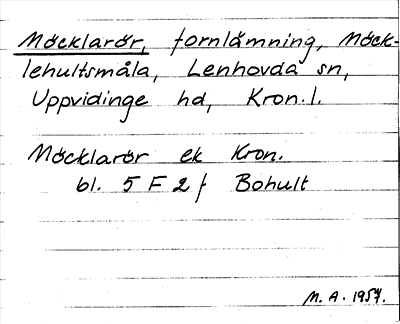 Möcklarör, fornlämning, Möck-
lehultsmåla, Lenhovda sn,
Uppvidinge hd, Kron. l.
Möcklarör ek Kron.
bl. 5 F 2 f Bohult
M. A. 1957.